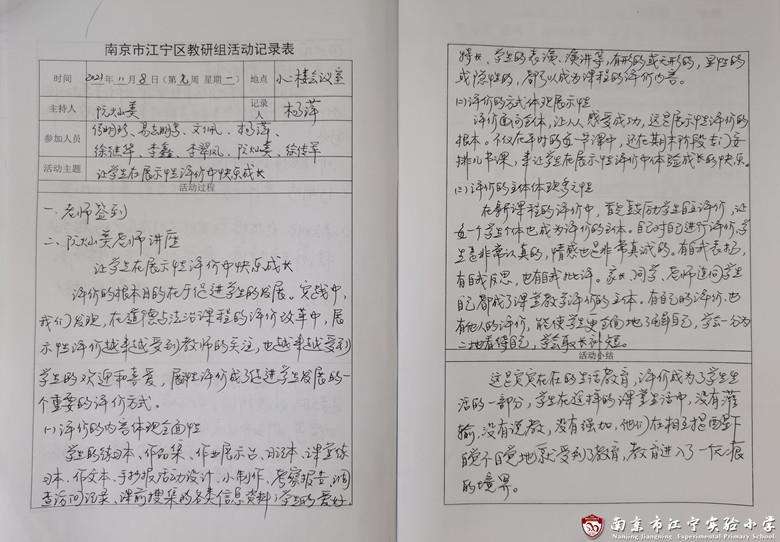 南京市江宁区教研组活动记录表
时间 2021年11月8日(第九周 星期一) 地点 小楼会议室
主持人 阮灿美 记录人 杨萍
参加人员
徐继华、李鑫、李翠凤、阮灿美、徐传军
活动主题 让学生在展示性评价中快乐成长
活动过程
一、老师签到
二、阮灿美老师讲座
让学生在展示性评价中快乐成长
评价的根本目的在于促进学生的发展。实践中,
我们发现,在道德与法治课程的评价改革中,展
示性评价越来越受到教师的关注,也越来越受到
学生的欢迎和喜爱,展性评价成了促进学生发展的一
个重要的评价方式。
(一)评价的内容体现全面性
学生的练习本、作品集、作业展示台、习本、课堂练
习本、作文本、手抄报活动设计、小制作、考察报告、调
查访问记录、课前搜集的各类信息资料;学生的爱好
特长、学生的表演、演讲等,有形的或无形的,显性的
或隐性的,都可以成为课程的评价内容。
(二)评价的方式体现展示性
评价面向全体,让人人感受成功,这是展示性评价的
根本。不仅在平时的每一节课中,还在期末阶段专门安
排几节课,来让学生在展示性评价中体验成长的快乐。
(三)评价的主体体现多元性
在新课程的评价中,首先鼓励学生自主评价,让
每一个学生个体也成为评价的主体。自己对自己进行评价,学
生是非常认真的,情感也是非常真诚的。有自我表扬,
有自我反思,也有自我批评。家长、同学、老师连同学生
自己都成了课堂教学评价的主体。有自己的评价,也
有他人的评价,能使学生更全面地了解自己,学会一分为
二地看待自己,学会取长补短。
活动小结
这是实实在在的生活教育,评价成为了学生生
活的一部分,学生在这样的课堂生活中,没有灌
输,没有说教,没有强加,他们在相互提醒中
自觉不自觉地就受到了教育,教育进入了一个无痕
的境界。
南京市江宁实验小学
Nanjing Jiangning Experimental Primary School